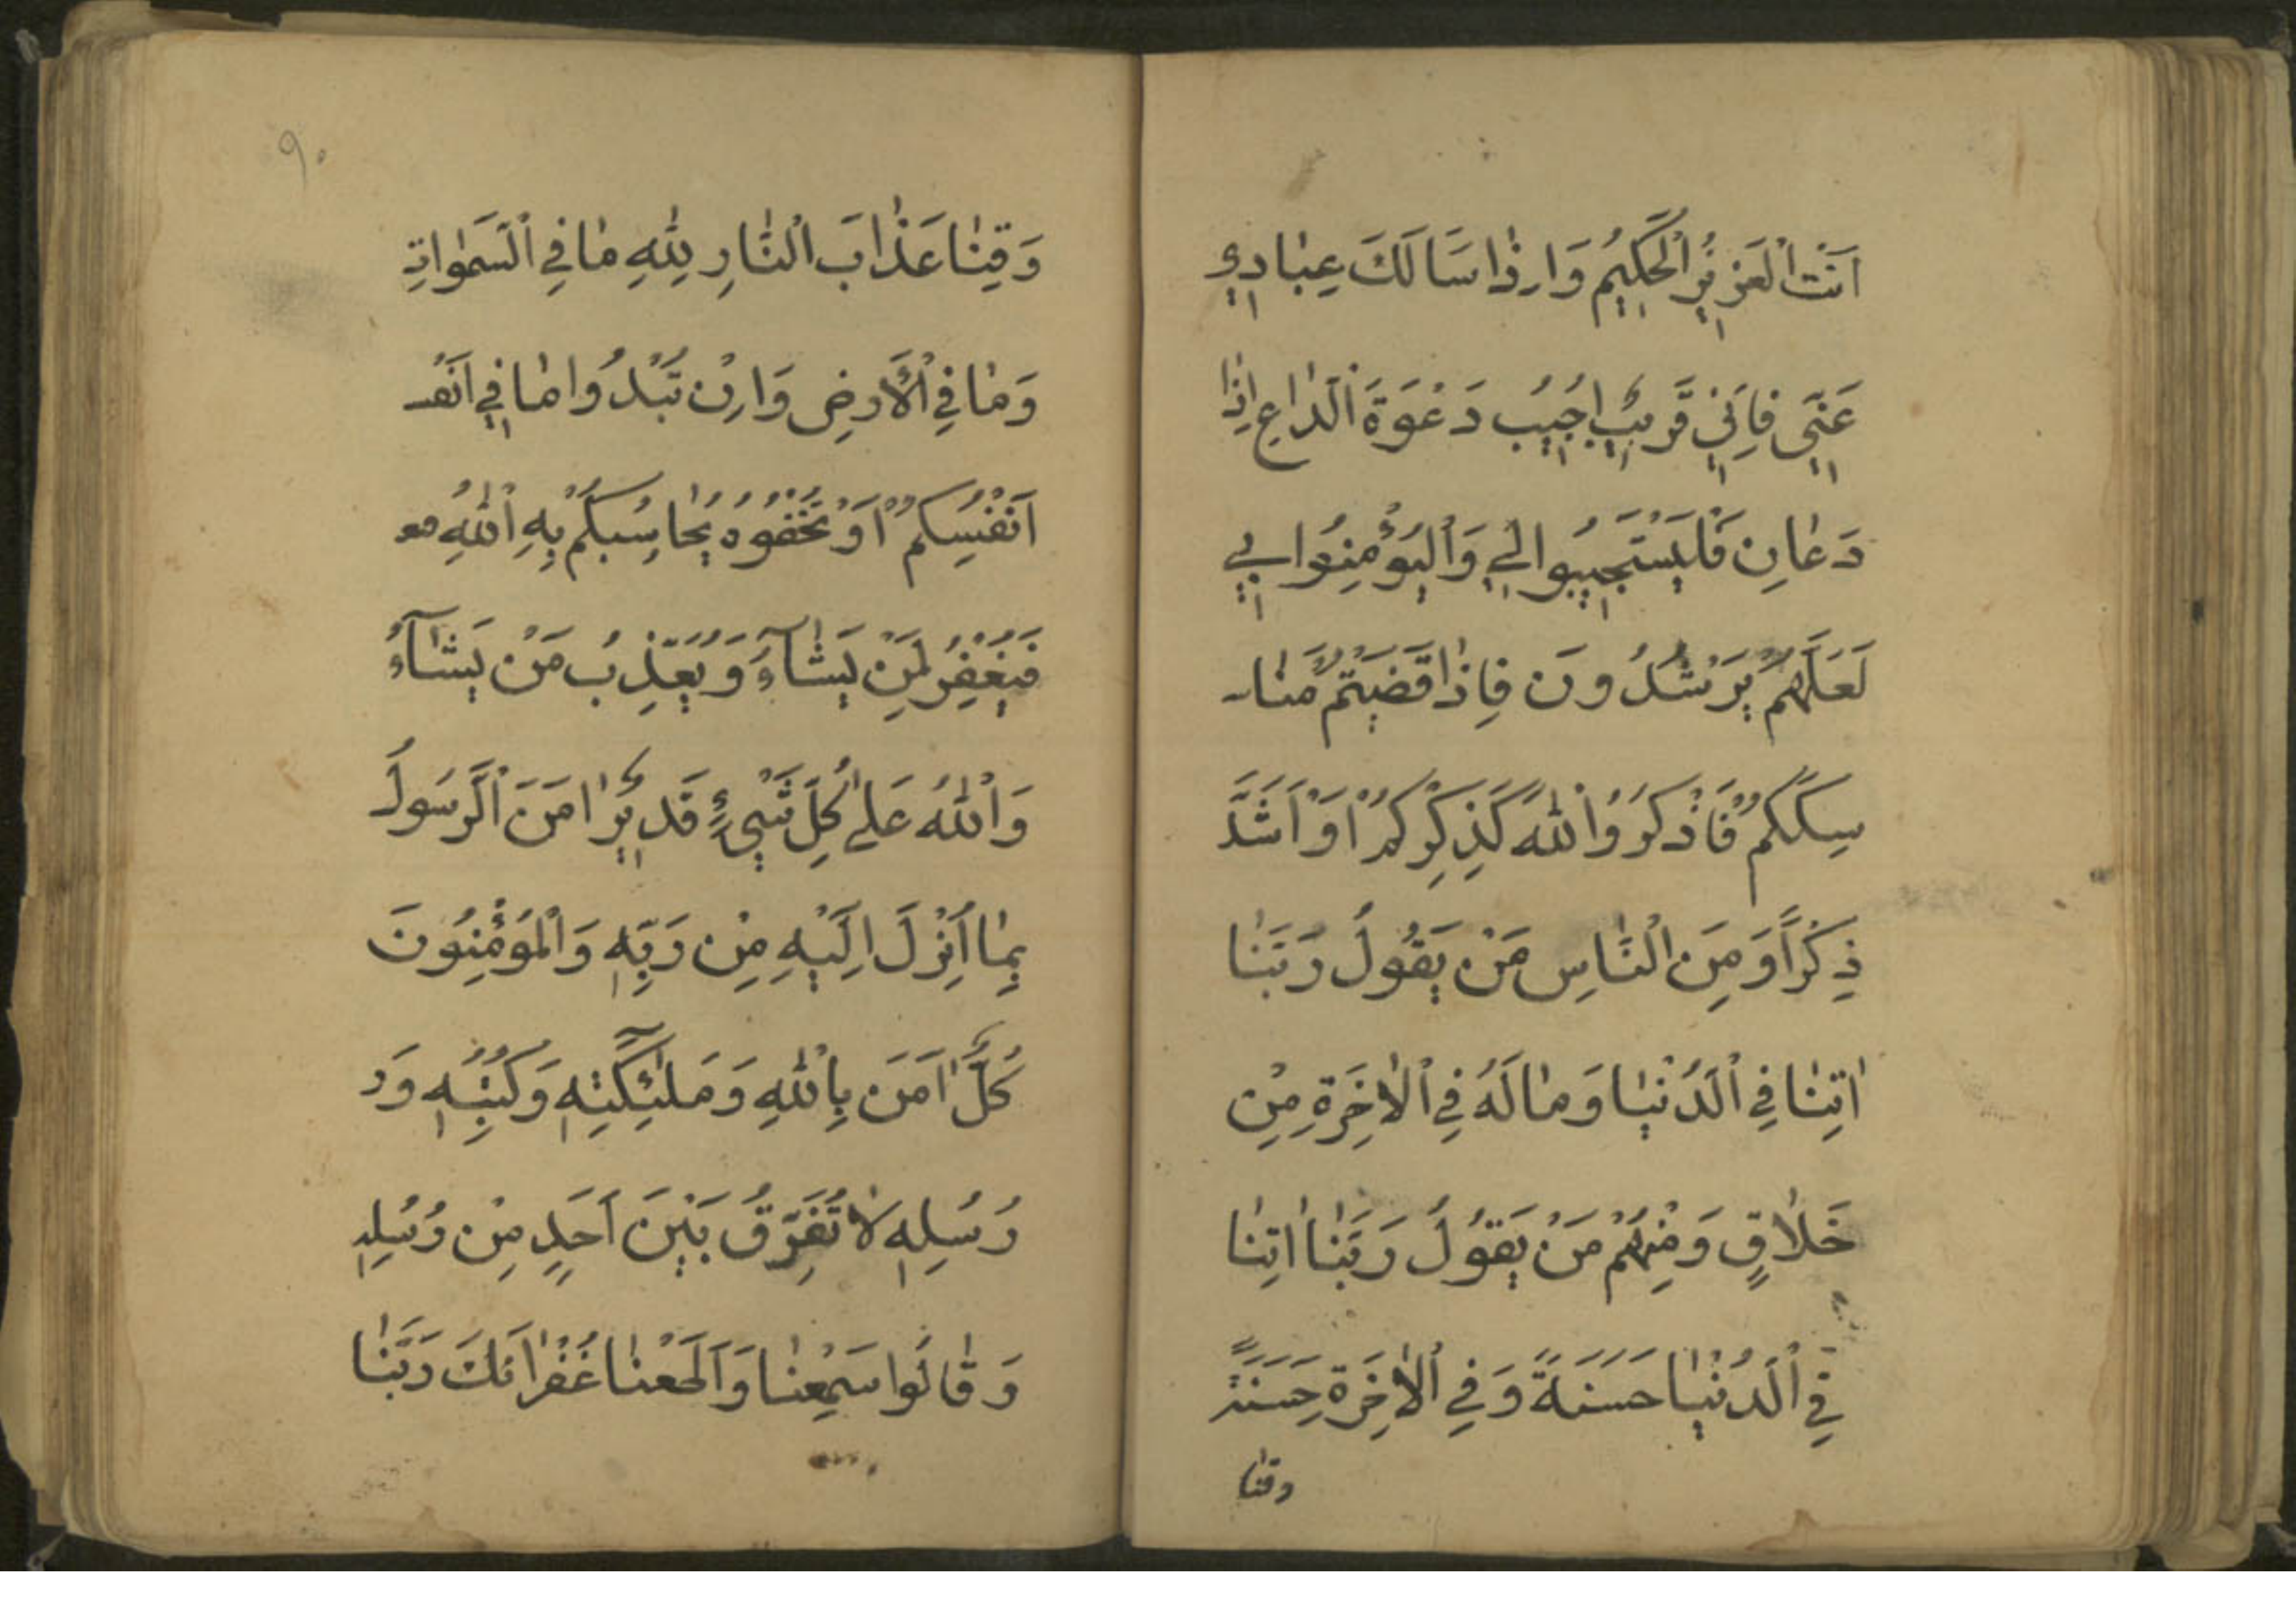 اَنْتَ اْلعَزِيزُ اْلحَكِيمُ وَاِذٰا سَاَلَكَ عِبٰادِي
عَنّٖي فَاِنّٖي قَرِيبٌ اُجِيبُ دَعْوَةَ اْلدّٰاعِ اِذٰا
دَعٰانِ فَلْيَسْتَجِيبُوا لِي وَاْليُؤْمِنُوا بِي
لَعَلَّهُمْ يَرْشُدُونَ فَاِذٰا قَضَيْتُمْ مَنٰا
سِكَكُمْ فَاذْكُرُوُا اْللّٰهَ كَذِكْرِكُمْ اَوْ اَشَدَّ
ذِكْرًا وَمِنَ اْلنّٰاسِ مَنْ يَقُولُ رَبَّنٰا
اٰتِنٰا فِي اْلدُّنْيٰا وَمٰا لَهُ فِي اْلاٰخِرَةِ مِنْ
خَلاٰقٍ وَمِنْهُمْ مَنْ يَقُولُ رَبَّنٰا اٰتِنٰا
فِي اْلدُّنْيٰا حَسَنَةً وَفِي اْلاٰخِرَةِ حَسَنَةً
وقنٰا
٩٠
وَقِنٰا عَذٰابَ اْلنّٰارِ لِلّٰهِ مٰا فِي اْلسَّمٰوٰاتِ
وَمٰا فِي اْلأَرضِ وَاِنْ تُبْدُوا مٰا فِي اَنْفُـ
اَنْفُسِكُمْ اَوْ تُخْفُوهُ يُحٰاسِبْكُمْ بِهِ اْللّٰهِ
فَيَغْفِرُ لِمَنْ يَشٰآءُ وَيُعَذِّبُ مَنْ يَشٰآءُ
وَاْللّٰهُ عَلىٰ كُلِّ شَيْءٍ قَدِيرٌ اٰمَنَ اْلرَّسُولُ
بِمٰا اُنْزِلَ اِلَيْهِ مِنْ رَبِّهٖ وَاْلمُؤْمِنُونَ
كُلٌّ اٰمَنَ بِاللّٰهِ وَمَلٰئِكَتِهٖ وَكُتُبِهٖ وَر
رُسُلِهٖ لاٰ نُفَرِّقُ بَيْنَ اَحَدٍ مِنْ رُسُلِهٖ
وَقٰالُوا سَمِعْنٰا وَاَطَعْنٰا غُفْرٰانَكَ رَبَّنٰا